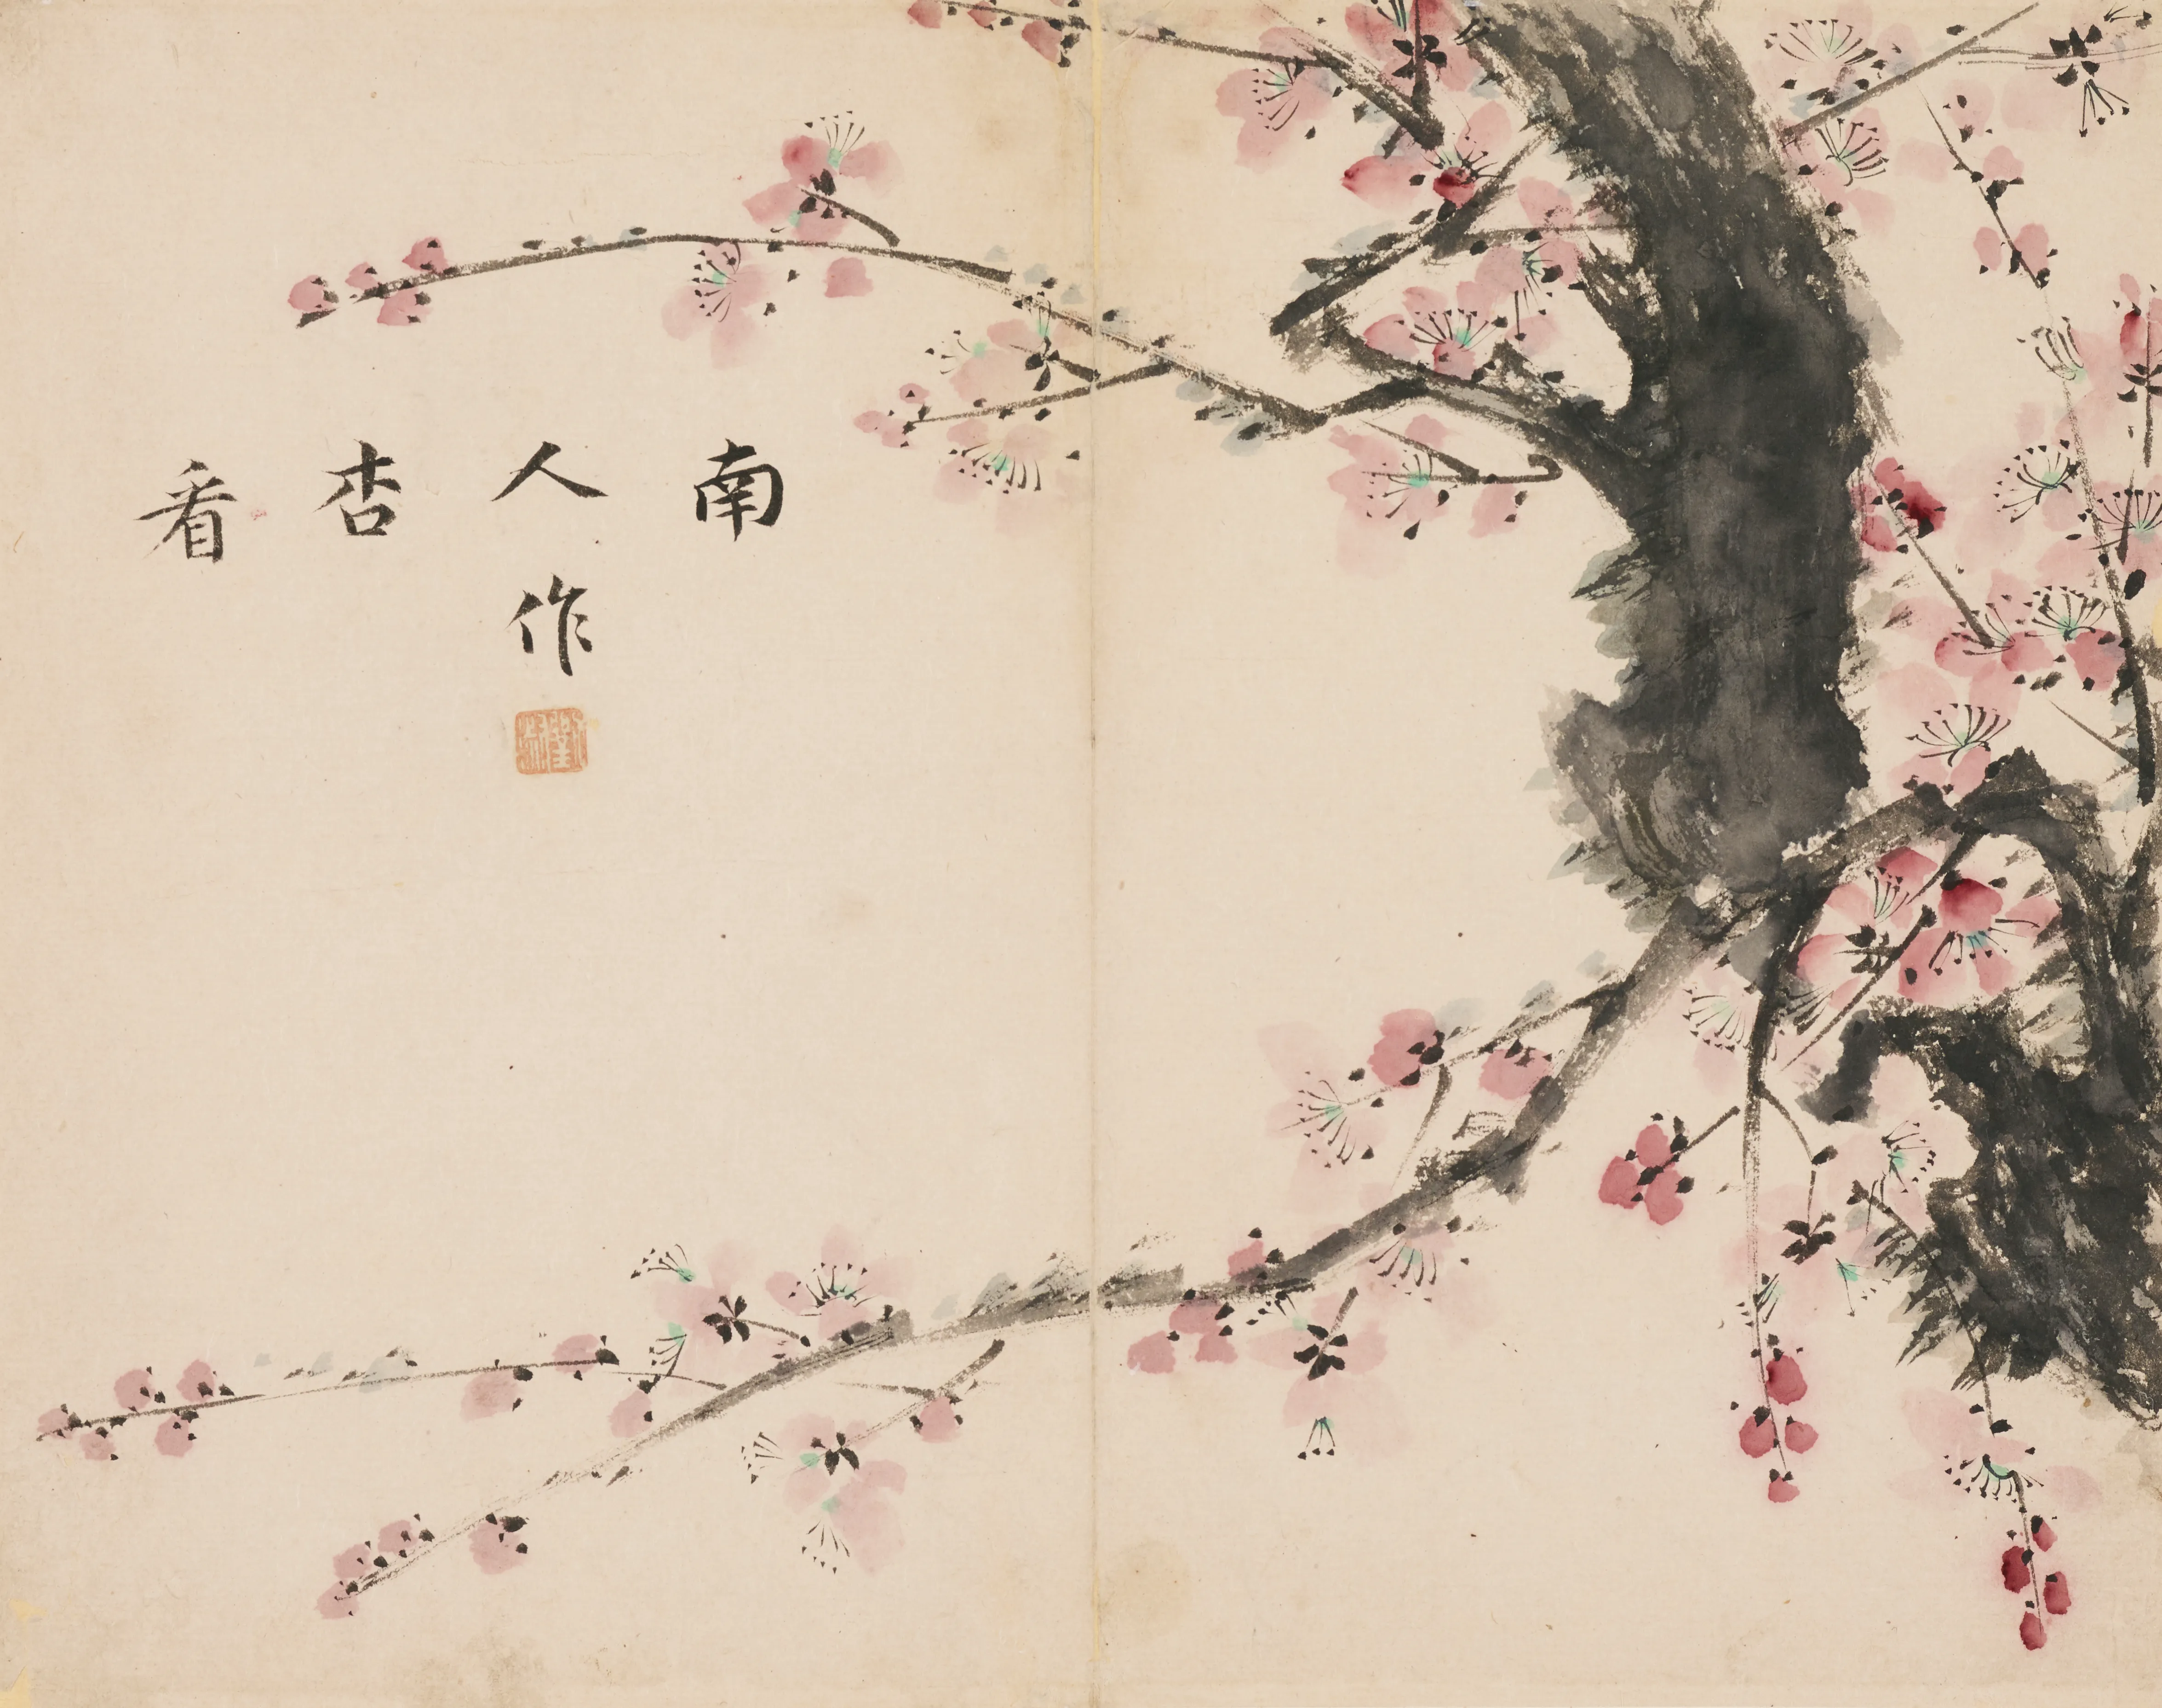 南
人作
杏
看